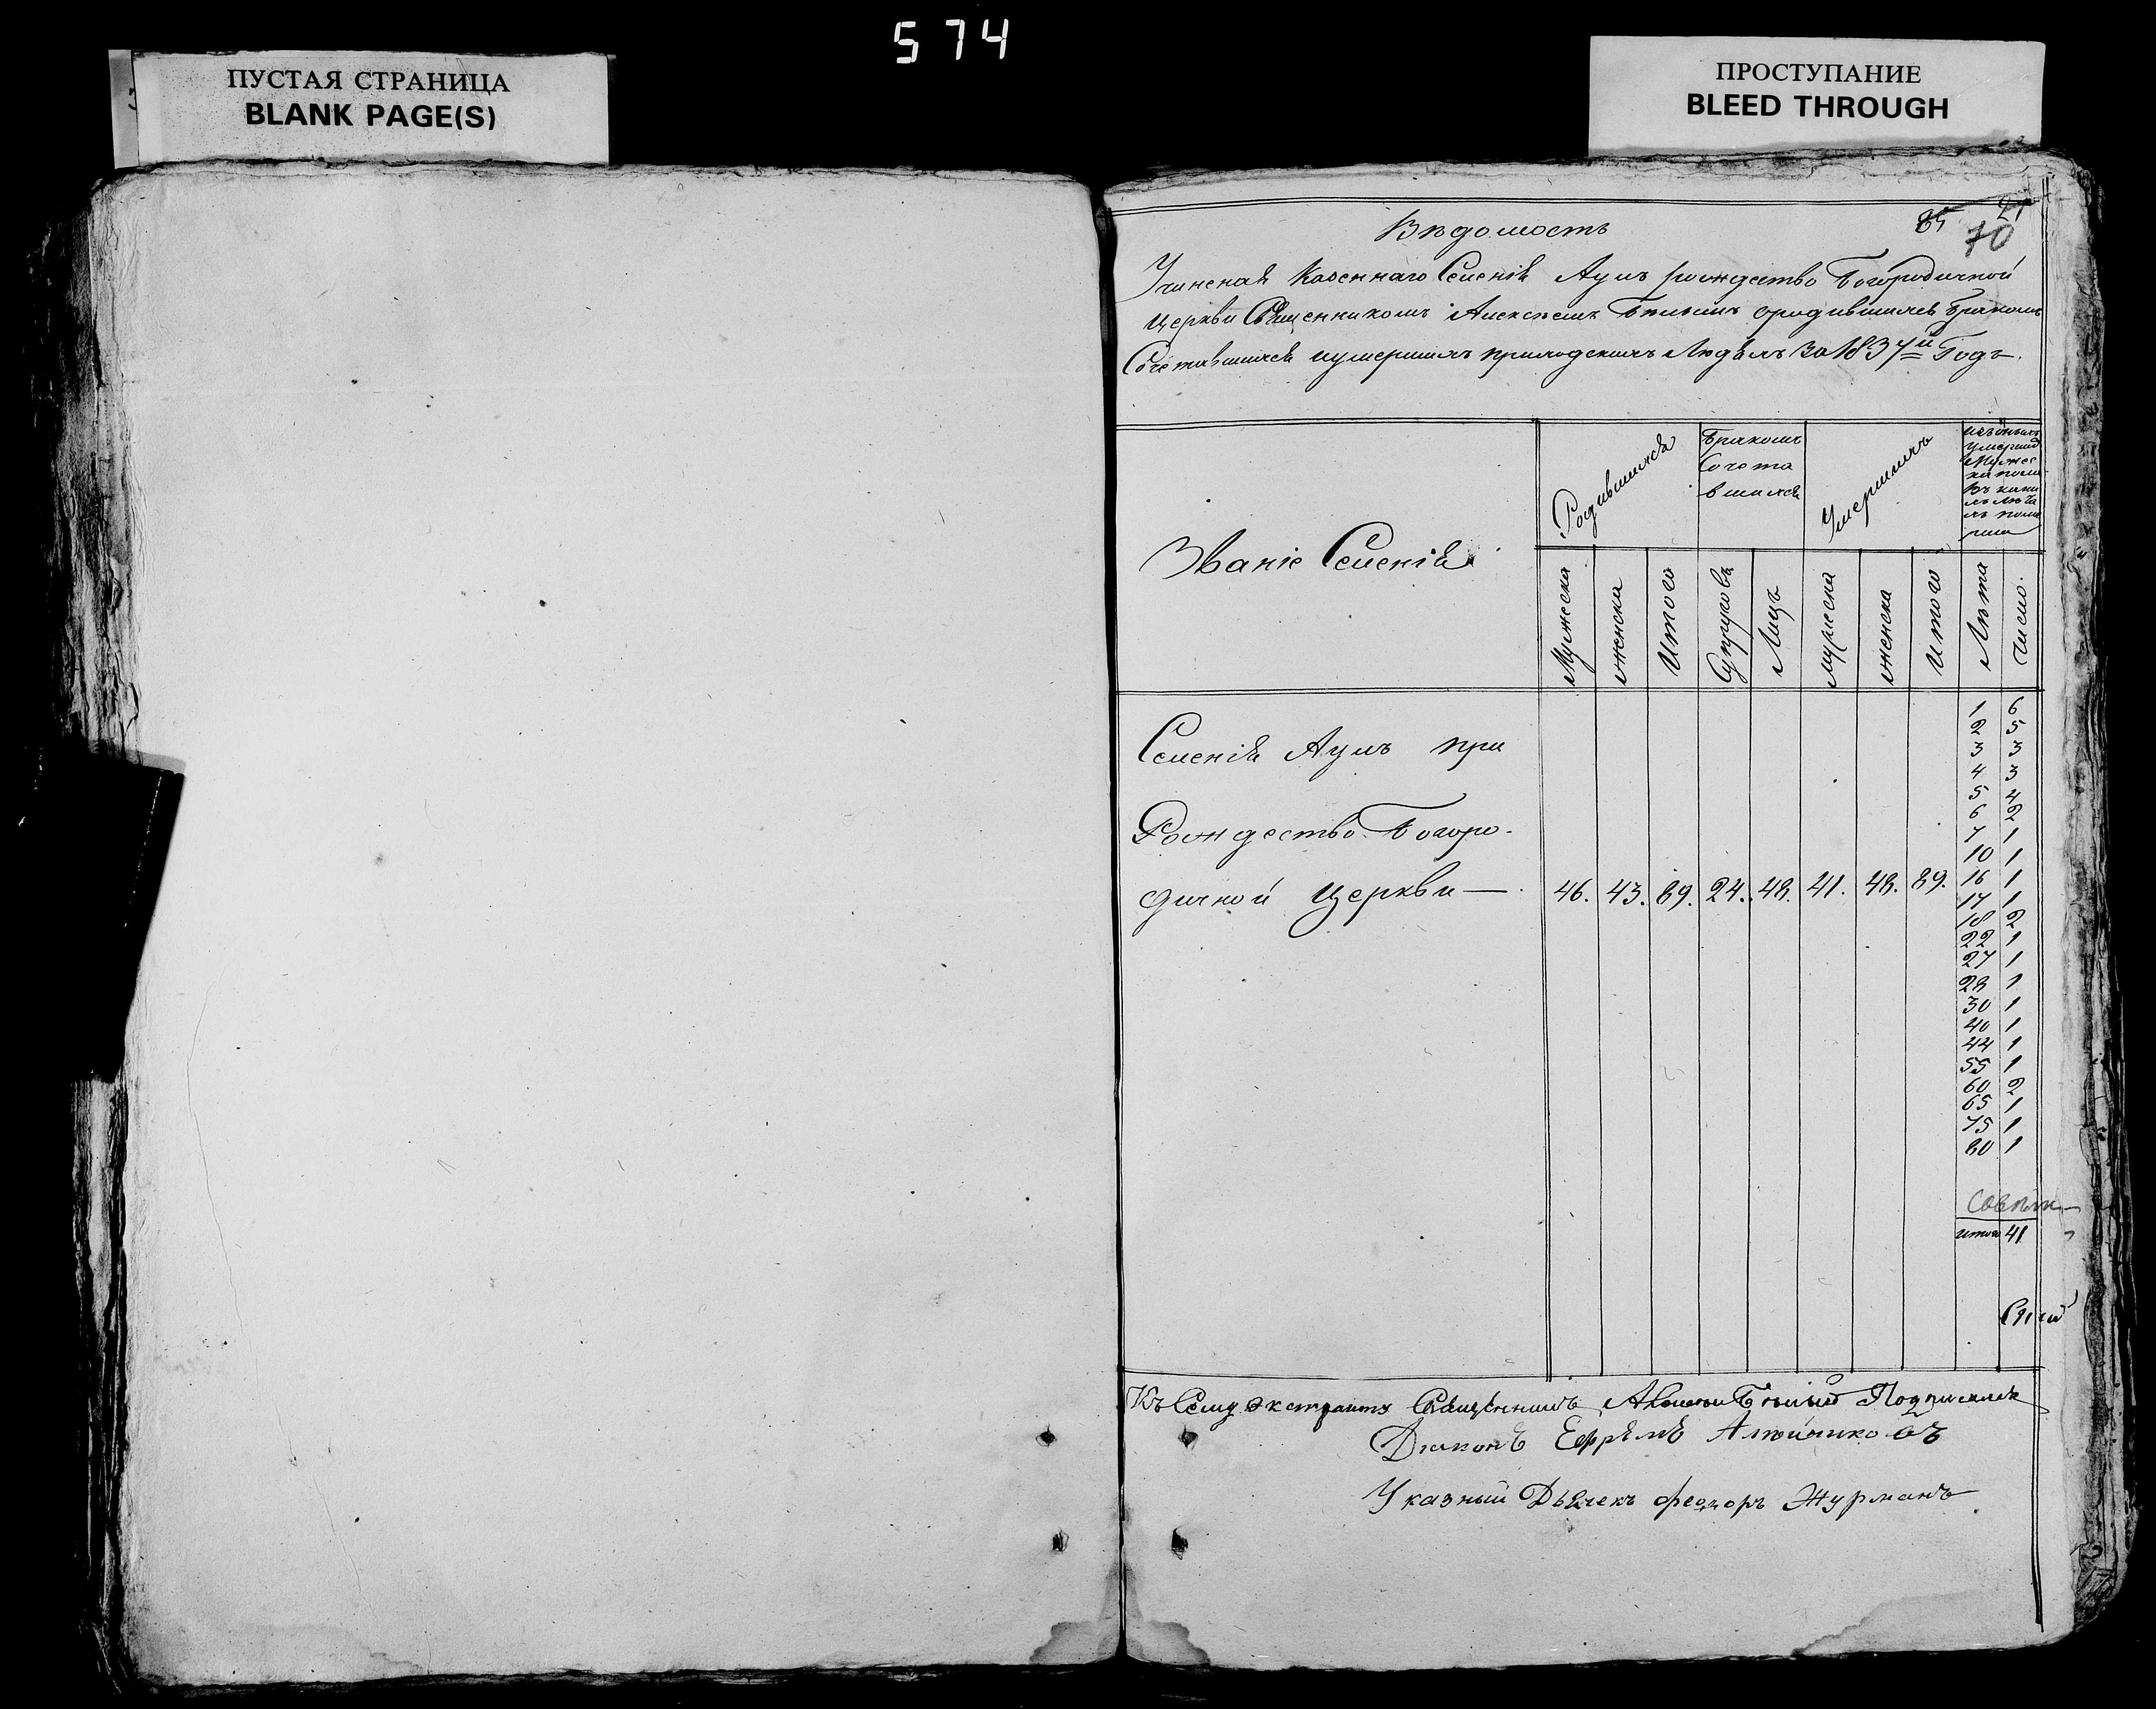 574
ПУСТАЯ СТРАНИЦА
BLANK PAGE(S)
ПРОСТУПАНИЕ
BLEED THROUGH
Вѣдомость
85 21
70
Учиненая Казеннаго Селенія Аулъ рождество Богородичной
Церкви Священникомъ Алексѣемъ Бѣлымъ ородившихся бракомъ
Сочетавшихся иумершихъ приходскихъ Людѣхъ За 1837й Годъ.
Званіе Селенія
Родившихся
бракомъ
Сочета
вшихся
Умершихъ
умершихъ
Мужеска
женска
Итого
Супруговъ
Лицъ
мужеска
женска
Итого
Лѣта
число.
Селенія Аулъ при
Рождество Богоро-
дичной Церкви —
46. 43. 89. 24. 48. 41. 48. 89.
1 6
2 5
3 3
4 3
5 4
6 2
7 1
10 1
16 1
17 1
18 2
22 1
27 1
28 1
30 1
40 1
44 1
55 1
60 2
65 1
75 1
80 1
итого 41
Къ Сему экстракту Священникъ Алексѣй Бѣлый Подписался
Диаконъ Ефрѣмъ Алѣйниковъ
Указный Дьячекъ Феодоръ Журманъ